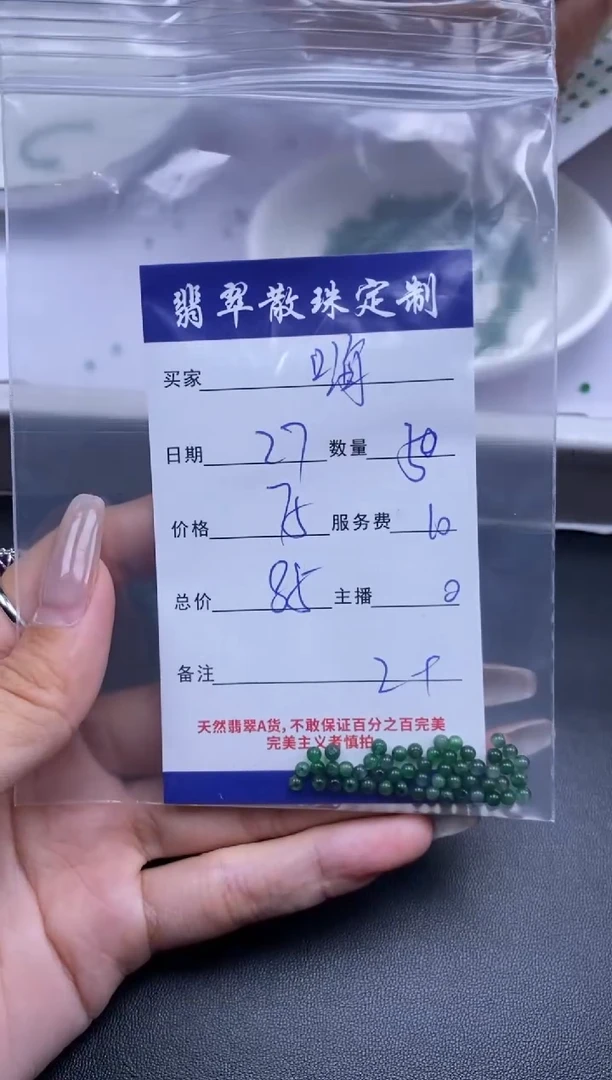 翡翠散珠定制
买家
日期 27 数量 50
价格 75 服务费 10
总价 85 主播
备注 2+
天然翡翠A货,不敢保证百分之百完美
完美主义者慎拍